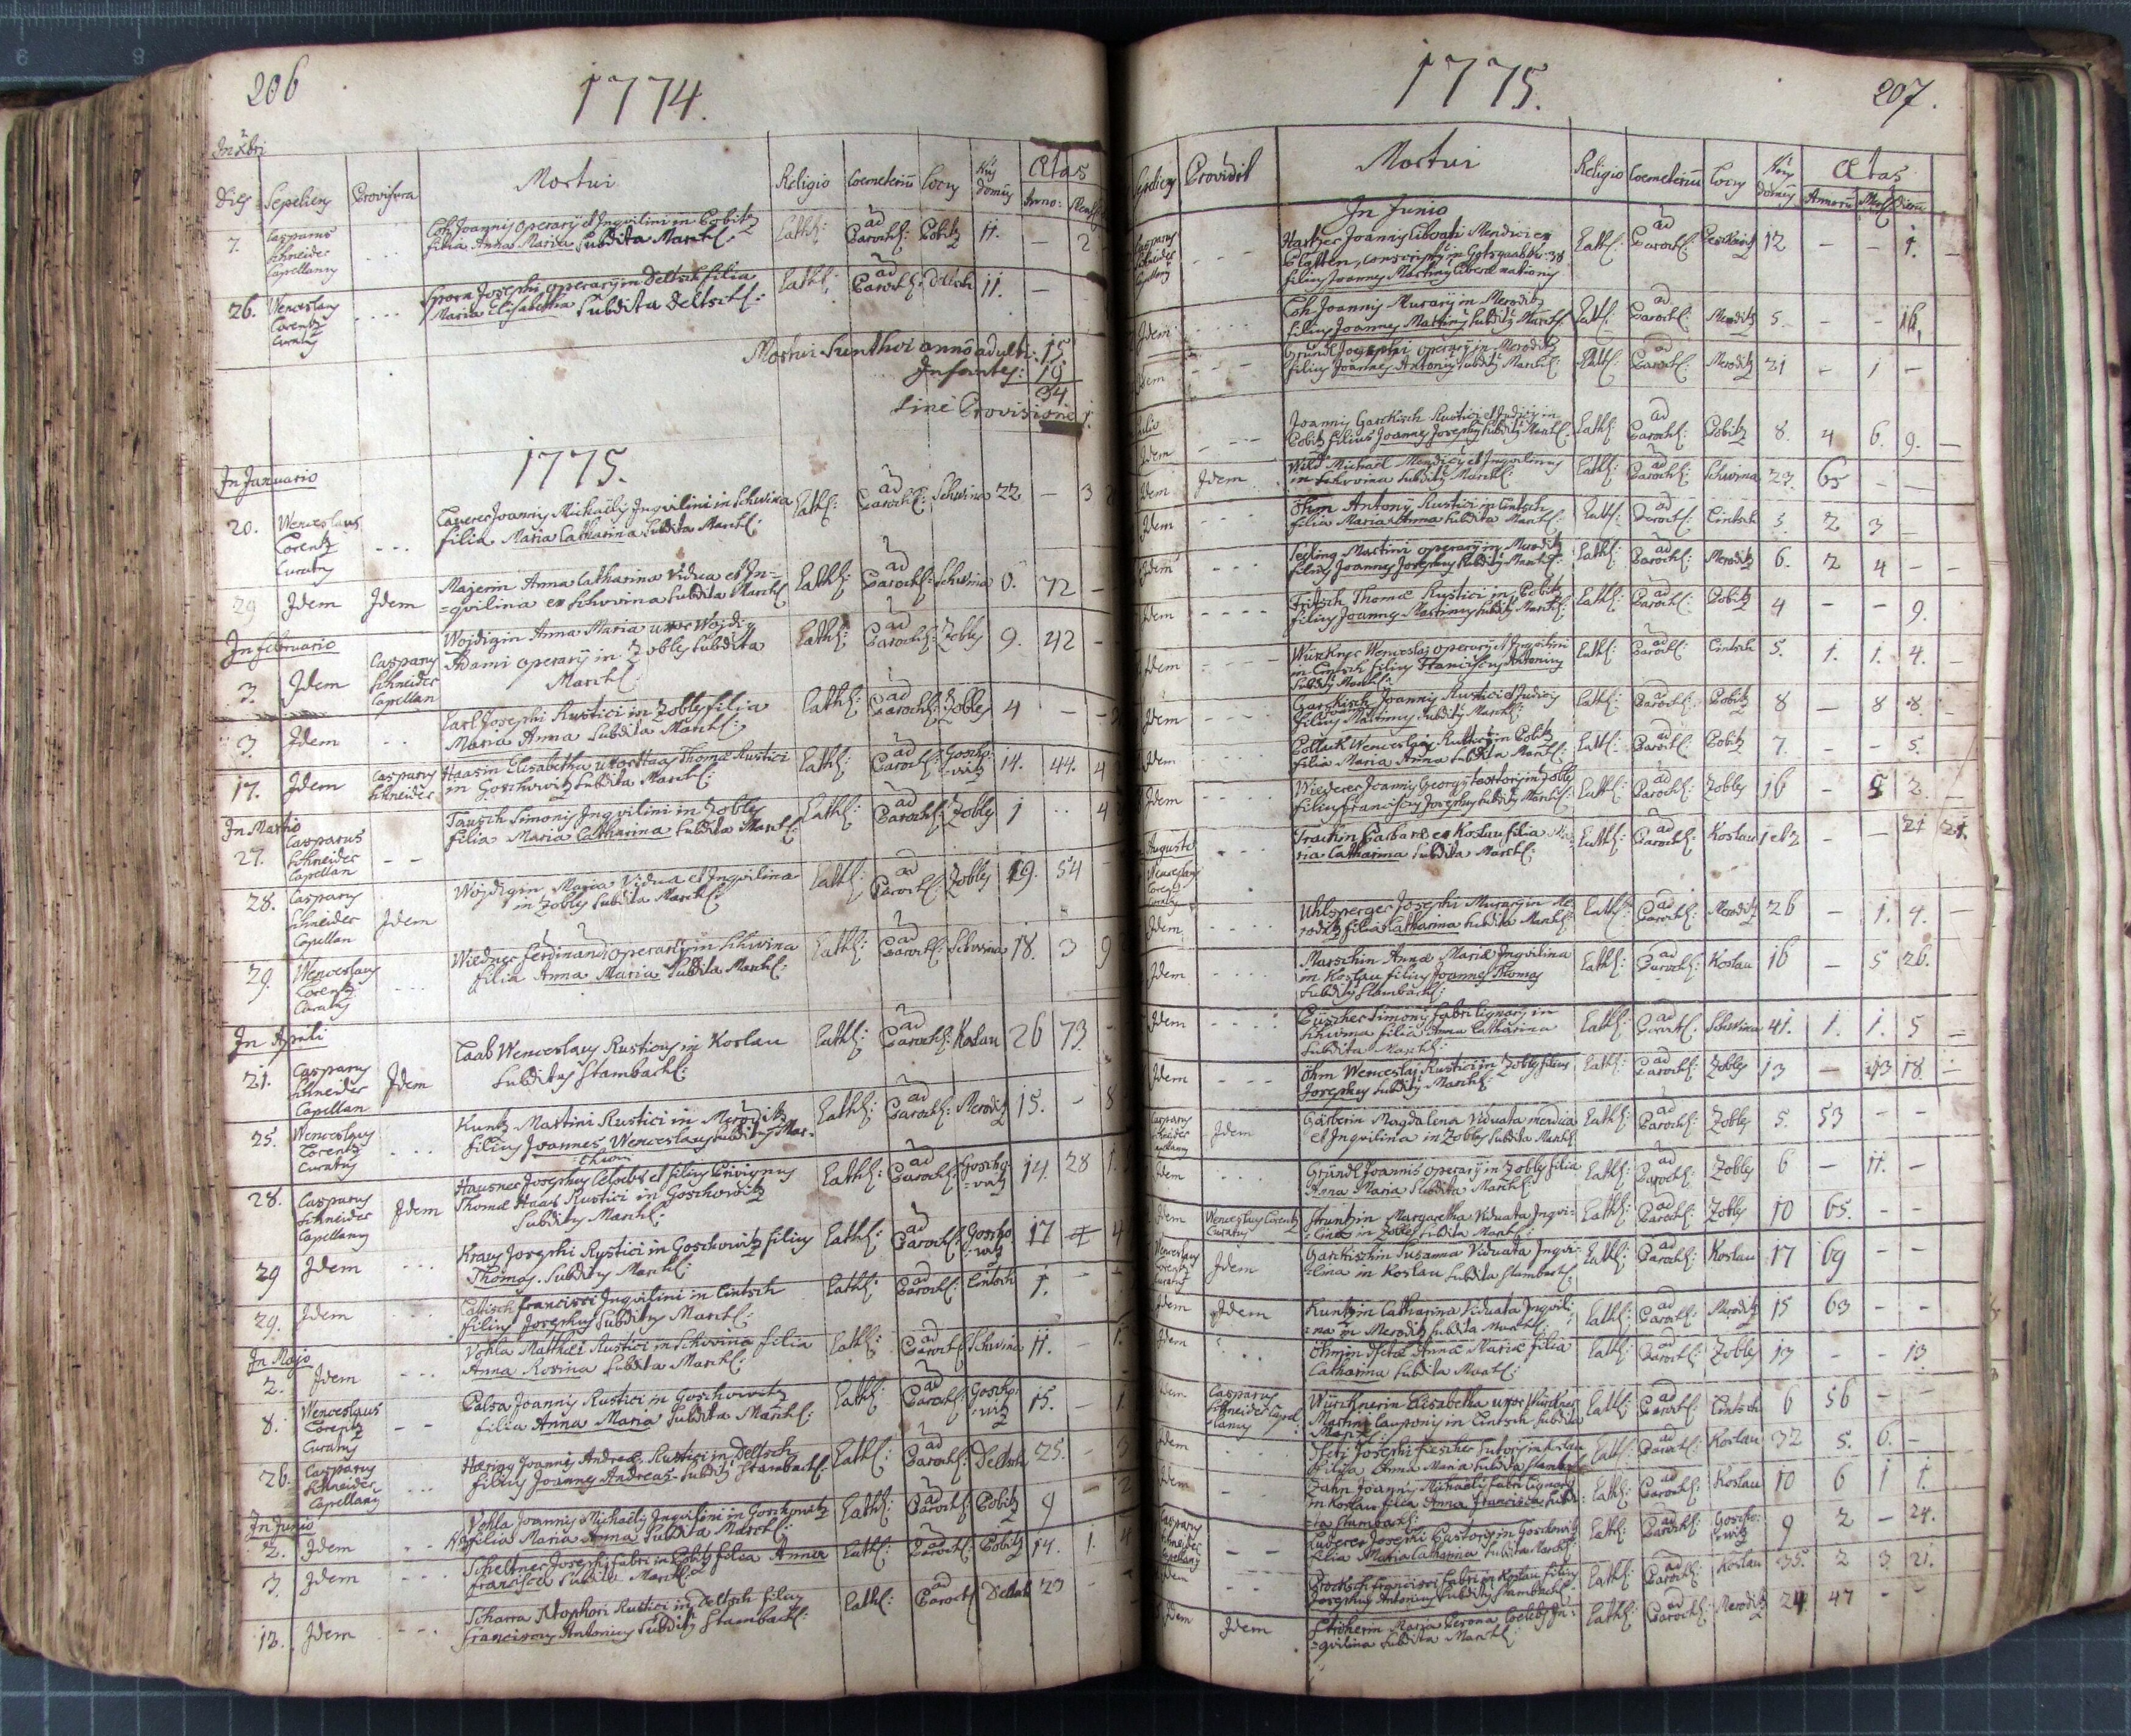 206
1774.
In Xbri
Dies Sepeliens Provisura Mortui Religio Coemeterium Locus Nus Domus Ætas
Anno: Mens
7. Casparus Schneider Capellanus
Loh Joannis operarii et Inquilini in Pobitz
filia Anna Maria Subdita March: Cath: ad Paroch: Pobitz 11. — 2
26. Wenceslaus Lorentz Curatus
Spora Josephi operarii in Deltsch filia
Maria Elisabetha Subdita Deltsch: Cath: ad Paroch: Deltsch 11. —
Mortui Sunt hoc anno adulti: 15.
Infantes: 19
34
Sine Provisione 1.
1775.
In Januario
20. Wenceslaus Lorentz Curatus
Joannis Michaelis Inquilini in Schwina
filia Maria Catharina Subdita March: Cath: ad Paroch: Schwina 22 — 3
29 Idem Idem
Majerin Anna Catharina Vidua et In=
=quilina ex Schwina Subdita March: Cath: ad Paroch: Schwina 6. 72 —
In Februario
3. Idem Casparus Schneider Capellan
Wojdigin Anna Maria uxor Wojdig
Adami operarii in Zobles Subdita
March: Cath: ad Paroch: Zobles 9. 42 —
3. Idem
Carl Josephi Rustici in Zobles filia
Maria Anna Subdita March: Cath: ad Paroch: Zobles 4 —
17. Idem Casparus Schneider
Haasin Elisabetha uxor Haas Thomæ Rustici
in Goschowitz Subdita March: Cath: ad Paroch: Goscho=witz 14. 44. 4
In Martio
27. Casparus Schneider Capellan
Tausch Simonis Inquilini in Zobles
filia Maria Catharina Subdita March: Cath: ad Paroch: Zobles 1 ... 4
28. Casparus Schneider Capellan Idem
Wojdigin Maria Vidua et Inquilina
in Zobles Subdita March: Cath: ad Paroch: Zobles 19. 54
29. Wenceslaus Lorentz Curatus
Wiedner Ferdinandi operarii in Schwina
filia Anna Maria Subdita March: Cath: ad Paroch: Schwina 18. 3 9
In Aprili
21. Casparus Schneider Capellan Idem
Laab Wenceslaus Rusticus in Koslau
Subditus Stambach: Cath: ad Paroch: Koslau 26 73 —
25. Wenceslaus Lorentz Curatus
Kuntz Martini Rustici in Meroditz
filius Joannes Wenceslaus Subditus Mar=
Cath: ad Paroch: Meroditz 15. — 8
28. Casparus Schneider Capellanus Idem
Hausner Josephus Cælebs et filius Privignus
Thomæ Haas Rustici in Goschowitz
Subditus March: Cath: ad Paroch: Goscho=witz 14. 28 1.
29 Idem
Kraus Josephi Rustici in Goschowitz filius
Thomas. Subditus March: Cath: ad Paroch: Goscho=witz 17 4
29. Idem
Francisci Inquilini in Lintsch
filius Josephus Subditus March: Cath: ad Paroch: Lintsch 1. —
In Majo
2. Idem
Vohla Matthæi Rustici in Schwina filia
Anna Rosina Subdita March: Cath: ad Paroch: Schwina 11. — 1.
8. Wenceslaus Lorentz Curatus
Palsa Joannis Rustici in Goschowitz
filia Anna Maria Subdita March: Cath: ad Paroch: Goscho=witz 15. — 1
26. Casparus Schneider Capellanus
Joannis Andreæ Rustici in Deltsch
filius Joannes Andreas Subditus Stambach: Cath: ad Paroch: Deltsch 25. —
In Junio
2. Idem
Vohla Joannis Michaelis Inquilini in Goschowitz
filia Maria Anna Subdita March: Cath: ad Paroch: Pobitz 9 — 2
3. Idem
Scheltner Josephi fabri in Pobitz filia Anna
Francisca Subdita March: Cath: ad Paroch: Pobitz 14. 1. 4
12. Idem
Scharra Stophori Rustici in Deltsch filius
Franciscus Antonius Subditus Stambach: Cath: ad Paroch: Deltsch 23 —
1775.
207.
Sepeliens Providit Mortui Religio Coemeterium Locus Nus Domus Ætas
Annorum Mens Dierum
In Junio
Casparus Schneider Capellanus
Hartzer Joannis Liborati Mendici ex
Platten, conscriptus in Gotsgaab Nr. 38
filius Joannes Martinus Cath: ad Paroch: 12 — — 1.
Idem
Loh Joannis Murarii in Meroditz
filius Joannes Martinus Subditus March: Cath: ad Paroch: Meroditz 5. — — 16
Idem
Gründl Josephi operarii in Meroditz
filius Joannes Antonius Subditus March: Cath: ad Paroch: Meroditz 21 — 1 —
Julio
Idem
Joannis Garkisch Rustici et Judicis in
Pobitz filius Joannes Josephus Subditus March: Cath: ad Paroch: Pobitz 8. 4 6. 9.
Idem Idem
Wild Michael Mendicus et Inquilinus
in Schwina Subditus March: Cath: ad Paroch: Schwina 23. 65 —
Idem
Öhm Antonii Rustici in Lintsch
filia Maria Anna Subdita March: Cath: ad Paroch: Lintsch 5. 2 3 —
Idem
Martini operarii in Meroditz
filius Joannes Josephus Subditus March: Cath: ad Paroch: Meroditz 6. 2 4 —
Idem
Fritsch Thomæ Rustici in Pobitz
filius Joannes Martinus Subditus March: Cath: ad Paroch: Pobitz 4 — — 9.
Idem
Würkner Wenceslai operarii et Inquilini
in Lintsch filius Franciscus Antonius
Subditus March: Cath: ad Paroch: Lintsch 5. 1. 1. 4.
Idem
Garckisch Joannis Rustici et Judicis
filius Joannes Martinus Subditus March: Cath: ad Paroch: Pobitz 8 — 8 8.
Idem
Pollack Wenceslai Rustici in Pobitz
filia Maria Anna Subdita March: Cath: ad Paroch: Pobitz 7. — — 5.
Idem
Wiederer Joannis Georgii textoris in Zobles
filius Franciscus Josephus Subditus March: Cath: ad Paroch: Zobles 16 — 8 2.
Augusto
Wenceslaus Lorentz Curatus
Barbaræ ex Koslau filia Ma=
ria Catharina Subdita March: Cath: ad Paroch: Koslau 1 et 2 — — 21
Idem
Uhlsperger Josephi Murarii in Me=
roditz filia Catharina Subdita March: Cath: ad Paroch: Meroditz 26 — 1. 4.
Idem
Marschin Annæ Mariæ Inquilina
in Koslau filius Joannes Thomas
Subditus Stambach: Cath: ad Paroch: Koslau 16 — 5 26.
Idem
Simonis fabri lignarii in
Schwina filia Anna Catharina
Subdita March: Cath: ad Paroch: Schwina 41. 1. 1. 5
Idem
Öhm Wenceslai Rustici in Zobles filius
Josephus Subditus March: Cath: ad Paroch: Zobles 13 — 18.
Casparus Schneider Capellanus Idem
Magdalena Viduata mendica
et Inquilina in Zobles Subdita March: Cath: ad Paroch: Zobles 5. 53 —
Idem
Gründl Joannis operarii in Zobles filia
Anna Maria Subdita March: Cath: ad Paroch: Zobles 6 — 11. —
Idem Wenceslaus Lorentz Curatus
Struntzin Margaretha Viduata Inqui=
=lina in Zobles Subdita March: Cath: ad Paroch: Zobles 10 65. —
Wenceslaus Lorentz Curatus Idem
Garckischin Susanna Viduata Inqui=
=lina in Koslau Subdita Stambach: Cath: ad Paroch: Koslau 17 69 —
Idem Idem
Kuntzin Catharina Viduata Inquili=
=na in Meroditz Subdita March: Cath: ad Paroch: Meroditz 15 63 —
Idem
Öhmin Annæ Mariæ filia
Catharina Subdita March: Cath: ad Paroch: Zobles 13 — — 13
Idem Casparus Schneider Capellanus
Würcknerin Elisabetha uxor Würckner
Martini Cauponis in Lintsch Subdita
March: Cath: ad Paroch: Lintsch 6 56 —
Idem
Josephi Fiescher Sutoris in Koslau
filia Anna Maria Subdita Stambach: Cath: ad Paroch: Koslau 32 5. 6. —
Idem
Zahn Joannis Michaelis fabri lignarii
in Koslau filia Anna Francisca Subdi=
=ta Stambach: Cath: ad Paroch: Koslau 10 6 1 1.
Casparus Schneider Capellanus
Luderer Josephi Pastoris in Goschowitz
filia Maria Catharina Subdita March: Cath: ad Paroch: Goscho=witz 9 2 — 24.
Idem
Francisci fabri in Koslau filius
Josephus Antonius Subditus Stambach: Cath: ad Paroch: Koslau 35. 2 3 21.
Idem Idem
Maria Verona Coelebs In=
=quilina Subdita March: Cath: ad Paroch: Meroditz 24 47 —